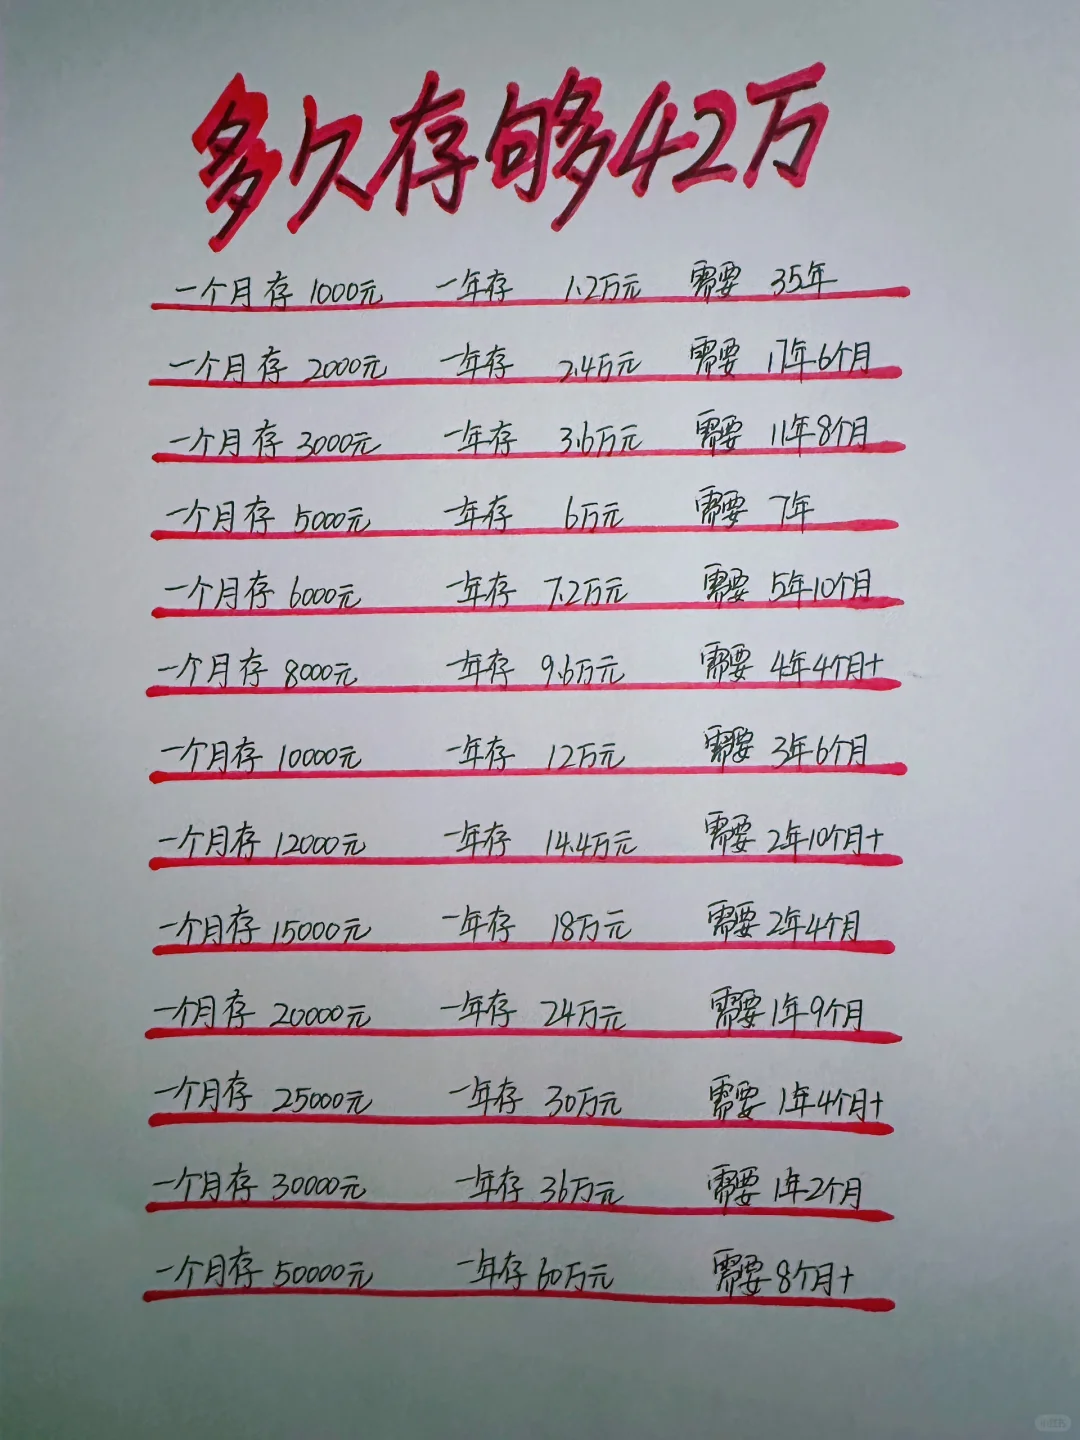 多久存够42万
一个月存 1000元 一年存 1.2万元 需要 35年
一个月存 2000元 一年存 2.4万元 需要 17年6个月
一个月存 3000元 一年存 3.6万元 需要 11年8个月
一个月存 5000元 一年存 6万元 需要 7年
一个月存 6000元 一年存 7.2万元 需要 5年10个月
一个月存 8000元 一年存 9.6万元 需要 4年4个月+
一个月存 10000元 一年存 12万元 需要 3年6个月
一个月存 12000元 一年存 14.4万元 需要 2年10个月+
一个月存 15000元 一年存 18万元 需要 2年4个月
一个月存 20000元 一年存 24万元 需要 1年9个月
一个月存 25000元 一年存 30万元 需要 1年4个月+
一个月存 30000元 一年存 36万元 需要 1年2个月
一个月存 50000元 一年存 60万元 需要 8个月+